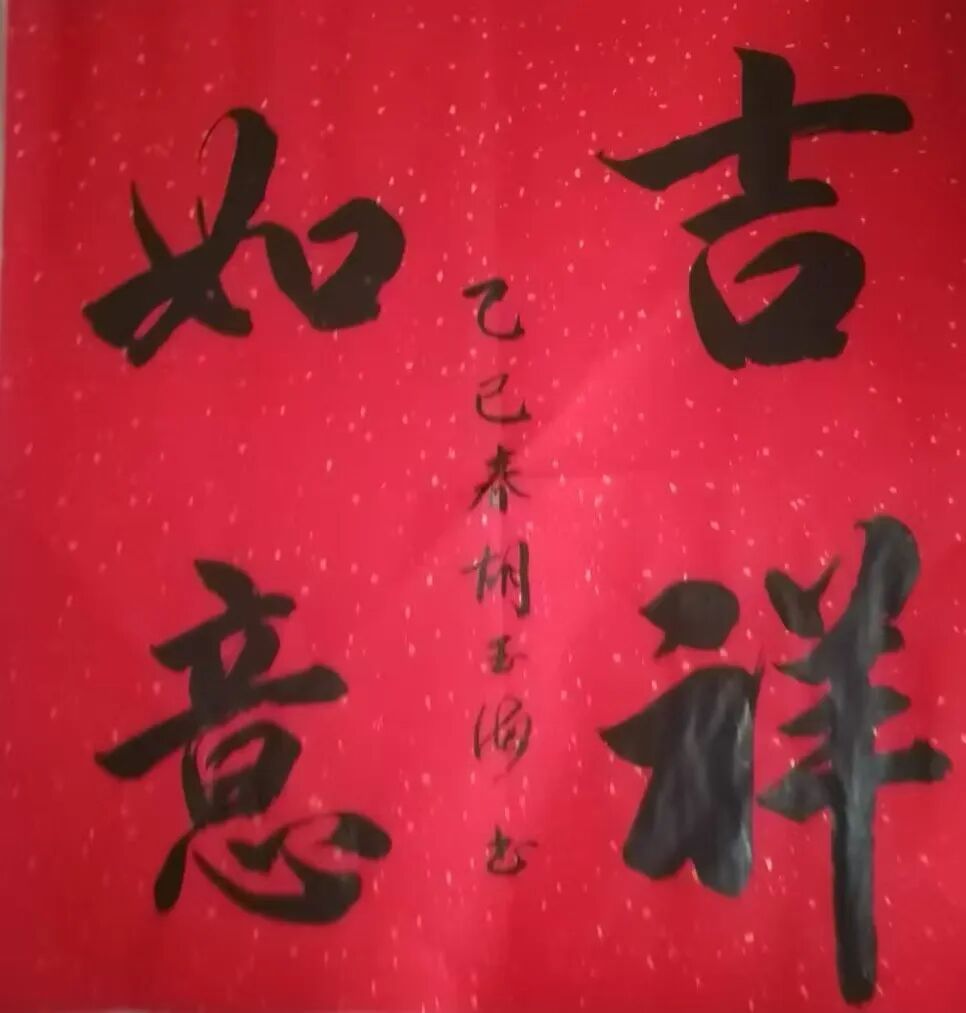 吉祥
如意
乙巳春胡玉海书